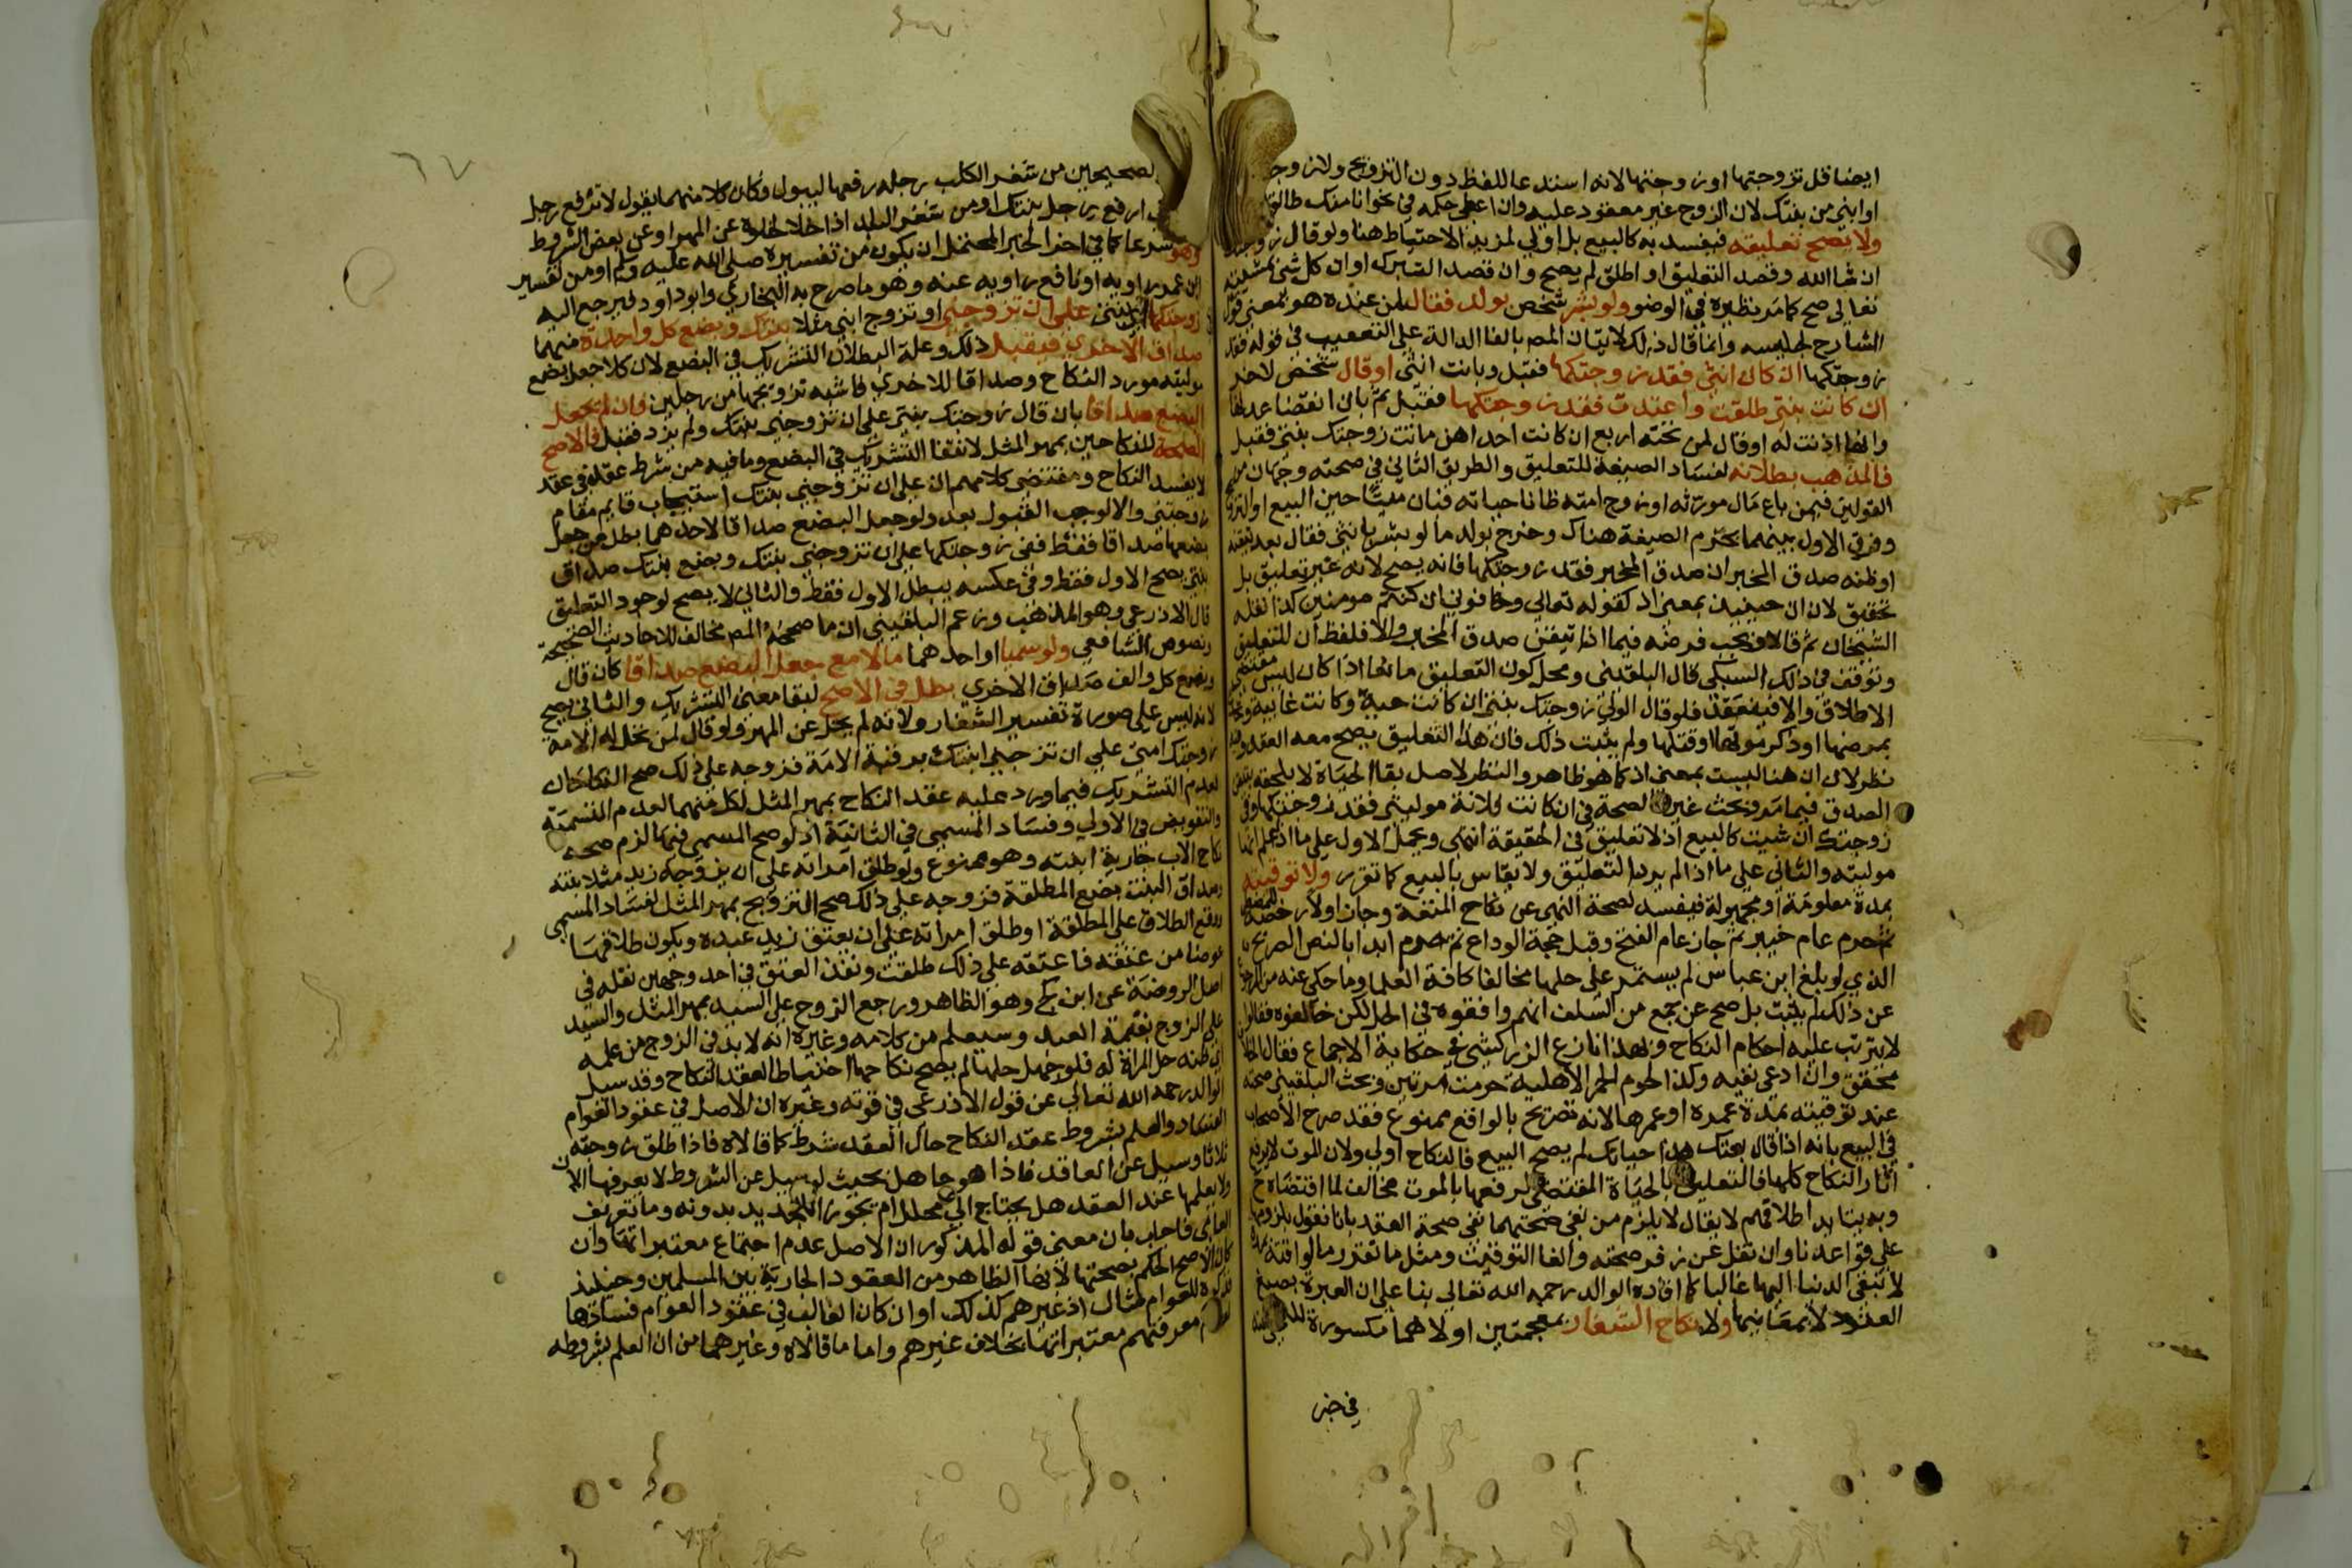 ايضا قل تزوجتها او زوجتها لانه استدعا للفظ دون التزويج ولا زوجت
او ابني من بنتك لان الزوج غير معقود عليه وان اعطي حكمه في نحو انا منك طالق
ولا يصح تعليقه فيفسد به كالبيع بل اولي لمزيد الاحتياط هنا ولو قال زوجتك
ان شا الله وقصد التعليق او اطلق لم يصح وان قصد التبرك او ان كل شي بمشيته
تعالي صح كما مر نظيره في الوضو ولو بشر شخص بولد فقال لمن عنده هو بمعني قول
الشارح لجليسه وانما قال ذلك لاتيان المص بالفا الدالة علي التعقيب في قوله فقد
زوجتكها ان كان انثي فقد زوجتكها فقبل وبانت انثي او قال شخص لاخر
ان كانت بنتي طلقت واعتدت فقد زوجتكها فقبل ثم بان انقضا عدتها
وانها اذنت له او قال لمن تحته اربع ان كانت احداهن ماتت زوجتك بنتي فقبل
فالمذهب بطلانه لفساد الصيغة للتعليق والطريق الثاني في صحته وجهان من
القولين فيمن باع مال مورثه او زوج امته ظانا حياته فبان ميتا حين البيع او التزويج
وفرق الاول بينهما بجزم الصيغة هناك وخرج بولد ما لو بشر بانثي فقال بعد تيقنه
او ظنه صدق المخبر ان صدق المخبر فقد زوجتكها فانه يصح لانه غير تعليق بل
تحقيق لان ان حينيذ بمعني اذ كقوله تعالي وخافوني ان كنتم مومنين كذا نقله
الشيخان ثم قالا ويجب فرضه فيما اذا تيقن صدق المخبر والا فلفظ ان للتعليق
وتوقف في ذلك السبكي قال البلقيني ومحل كون التعليق مانعا اذا كان ليس مقتضي
الاطلاق والا فينعقد فلو قال الولي زوجتك بنتي ان كانت حية وكانت غايبة وتحدث
بمرضها او ذكر موتها او قتلها ولم يثبت ذلك فان هذا التعليق يصح معه العقد وفيه
نظر لان ان هنا ليست بمعني اذ كما هو ظاهر والنظر لاصل بقا الحياة لا يلحقه بتيقن
الصدق فيما مر وبحث غيره الصحة في ان كانت فلانة موليتي فقد زوجتكها وفي
زوجتك ان شيت كالبيع اذ لا تعليق في الحقيقة انتهي ويحمل الاول علي ما اذا علم انها
موليته والثاني علي ما اذا لم يرد التعليق ولا يقاس بالبيع كما تقرر ولا توقيته
بمدة معلومة او مجهولة فيفسد لصحة النهي عن نكاح المتعة وجاز اولا رخصة للمضطر
ثم حرم عام خيبر ثم جاز عام الفتح وقبل حجة الوداع ثم حرم ابدا بالنص الصريح
الذي لو بلغ ابن عباس لم يستمر علي حلها مخالفا كافة العلما وما حكي عنه من الرجوع
عن ذلك لم يثبت بل صح عن جمع من السلف انهم وافقوه في الحل لكن خالفوه فقالوا
لا يترتب عليه احكام النكاح وبهذا نازع الزركشي في حكاية الاجماع فقال الخلاف
محقق وان ادعي نفيه وكذا لحوم الحمر الاهلية حرمت مرتين وبحث البلقيني صحته
عند توقيته بمدة عمره او عمرها لانه تصريح بالواقع ممنوع فقد صرح الاصحاب
في البيع بانه اذا قال بعتك هذا حياتك لم يصح البيع فالنكاح اولي ولان الموت لا يرفع
اثار النكاح كلها فالتعليق بالحياة المقتضي لرفعها بالموت مخالف لما اقتضاه
وبه يتايد اطلاقهم لا يقال لا يلزم من نفي صحتهما نفي صحة العقد بانا نقول يلزومها
علي قواعدنا وان نقل عن زفر صحته والغا التوقيت ومثل ما تقرر ما لو اقته بمدة
لا تبقي الدنيا اليها غالبا كما افاده الوالد رحمه الله تعالي بنا علي ان العبرة بصيغ
العقود لا بمعانيها ولا نكاح الشغار بمعجمتين اولاهما مكسورة للنهي عنه
في خبر
٦٧
الصحيحين من شغر الكلب رجله رفعها ليبول وكان كلا منهما يقول لا ترفع رجل
ارفع رجل بنتك او من شغر البلد اذا خلا لخلوه عن المهر او عن بعض الشروط
وهو شرعا كما في اخر الخبر المحتمل ان يكون من تفسيره صلي الله عليه وسلم او من تفسير
ابن عمر راويه او نافع راويه عنه وهو ما صرح به البخاري وابو داود فيرجع اليه
زوجتكها اي بنتي علي ان تزوجني او تزوج ابني مثلا بنتك وبضع كل واحدة منهما
صداق الاخري فيقبل ذلك وعلة البطلان التشريك في البضع لان كلا جعل بضع
موليته مورد النكاح وصداقا للاخري فاشبه تزويجها من رجلين فان لم يجعل
البضع صداقا بان قال زوجتك بنتي علي ان تزوجني بنتك ولم يزد فقبل فالاصح
الصحة للنكاحين بمهر المثل لانتفا التشريك في البضع وما فيه من شرط عقد في عقد
لا يفسد النكاح ومقتضي كلامهم ان علي ان تزوجني بنتك استيجاب قايم مقام
زوجتني والا لوجب القبول بعد ولو جعل البضع صداقا لاحدهما بطل من جعل
بضعها صداقا فقط ففي زوجتكها علي ان تزوجني بنتك وبضع بنتك صداق
بنتي يصح الاول فقط وفي عكسه يبطل الاول فقط والثاني لا يصح لوجود التعليق
قال الاذرعي وهو المذهب وزعم البلقيني ان ما صححه المص مخالف للاحاديث الصحيحة
ونصوص الشافعي ولو سميا او احدهما مالا مع جعل البضع صداقا كان قال
وبضع كل والف صداق الاخري بطل في الاصح لبقا معني التشريك والثاني يصح
لانه ليس علي صورة تفسير الشغار ولانه لم يخل عن المهر ولو قال لمن تحل له الامة
زوجتك امتي علي ان تزوجني ابنتك برقبة الامة فزوجه علي ذلك صح النكاحان
لعدم التشريك فيما ورد عليه عقد النكاح بمهر المثل لكل منهما لعدم التسمية
والتفويض في الاولي وفساد المسمي في الثانية اذ لو صح المسمي فيها لزم صحة
نكاح الاب جارية ابنته وهو ممنوع ولو طلق امراته علي ان يزوجه زيد مثلا بنته
وصداق البنت بضع المطلقة فزوجه علي ذلك صح التزويج بمهر المثل لفساد المسمي
ووقع الطلاق علي المطلقة او طلق امراته علي ان يعتق زيد عبده ويكون طلاقها
عوضا من عتقه فاعتقه علي ذلك طلقت ونفذ العتق في احد وجهين نقله في
اصل الروضة عن ابن كج وهو الظاهر ورجع الزوج علي السيد بمهر المثل والسيد
علي الزوج بقيمة العبد وسيعلم من كلامه وغيره انه لا بد في الزوج من علمه
اي ظنه حل المراة له فلو جهل حلها لم يصح نكاحها احتياطا لعقد النكاح وقد سيل
الوالد رحمه الله تعالي عن قول الاذرعي في قوته وغيره ان الاصل في عقود العوام
الفساد والعلم بشروط عقد النكاح حال العقد شرط كما قالاه فاذا طلق زوجته
ثلاثا وسيل عن العاقد فاذا هو جاهل بحيث لو سيل عن الشروط لا يعرفها الان
ولا يعلمها عند العقد هل يحتاج الي محلل ام يجوز التجديد بدونه وما تعريف
العامي فاجاب بان معني قوله المذكور ان الاصل عدم اجتماع معتبراتها وان
كان الاصح الحكم بصحتها لانها الظاهر من العقود الجارية بين المسلمين وحينئذ
للعوام مثال اذ غيرهم كذلك او ان كان الغالب في عقود العوام فسادها
معرفتهم معتبراتها بخلاف غيرهم واما ما قالاه وغيرهما من ان العلم بشروطه